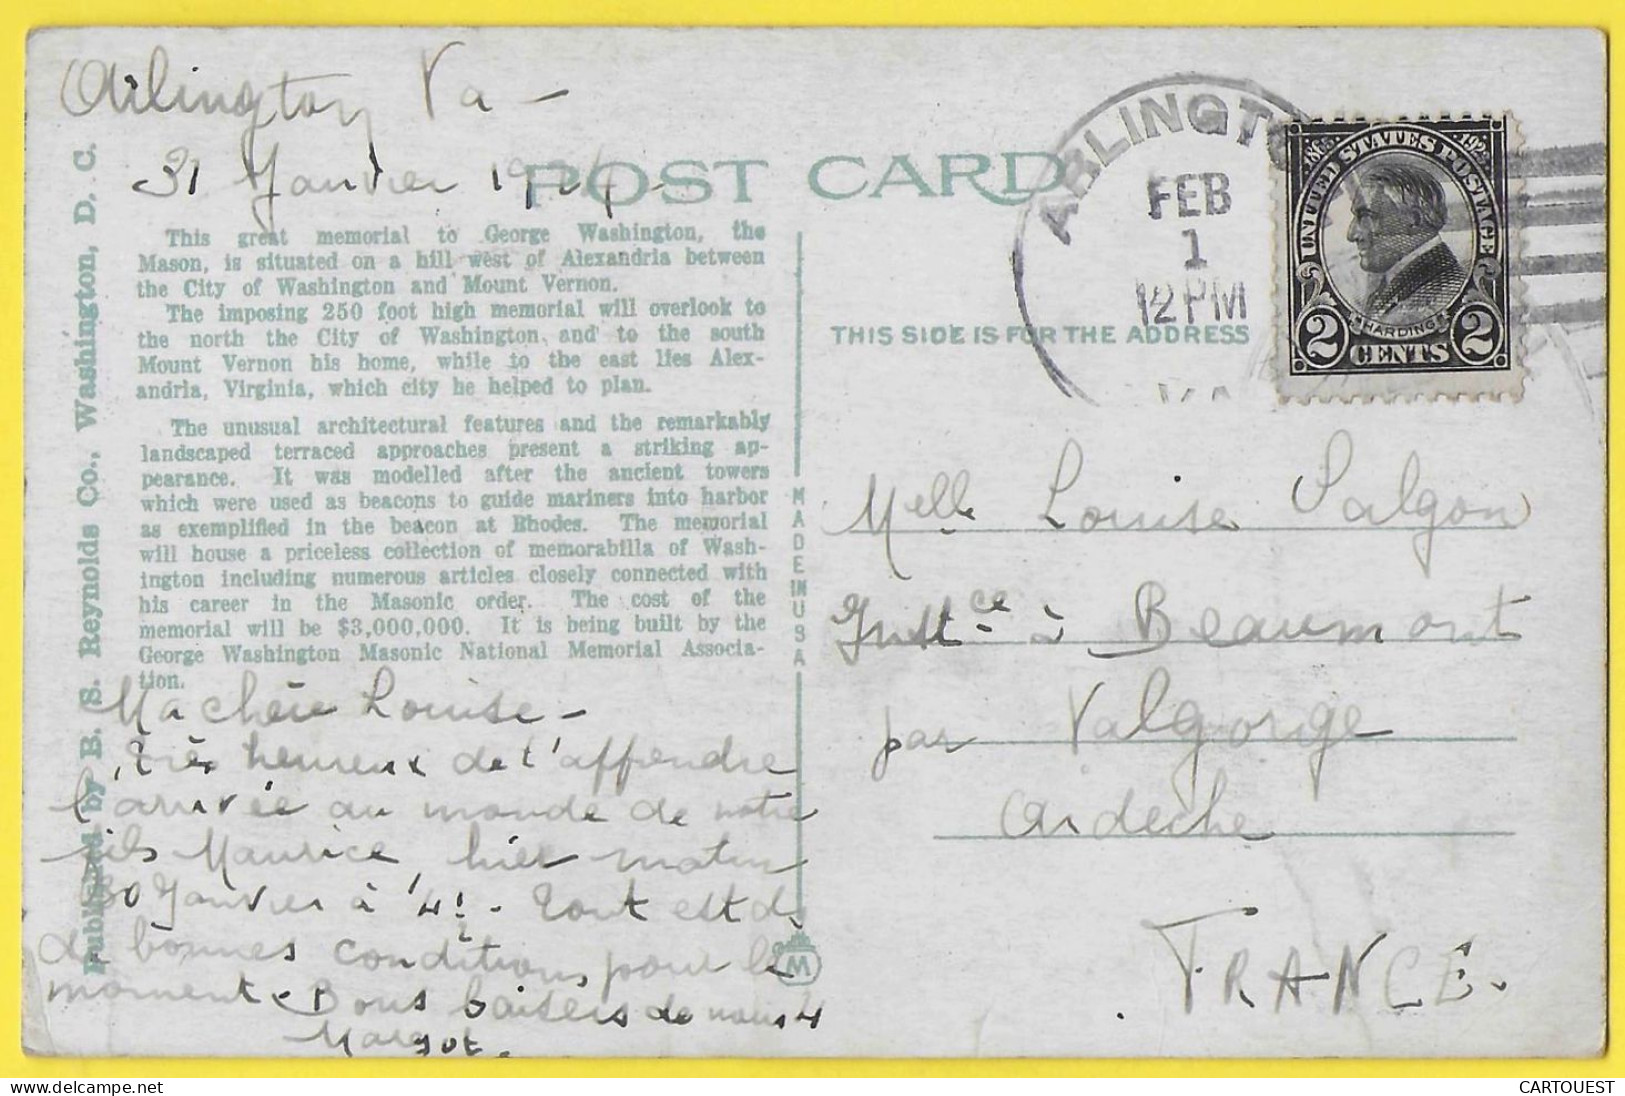 Arlington Va -
31 Janvier 1924
POST CARD
This great memorial to George Washington, the
Mason, is situated on a hill west of Alexandria between
the City of Washington and Mount Vernon.
The imposing 250 foot high memorial will overlook to
the north the City of Washington, and to the south
Mount Vernon his home, while to the east lies Alex-
andria, Virginia, which city he helped to plan.
The unusual architectural features and the remarkably
landscaped terraced approaches present a striking ap-
pearance. It was modelled after the ancient towers
which were used as beacons to guide mariners into harbor
as exemplified in the beacon at Rhodes. The memorial
will house a priceless collection of memorabilla of Wash-
ington including numerous articles closely connected with
his career in the Masonic order. The cost of the
memorial will be $3,000,000. It is being built by the
George Washington Masonic National Memorial Associa-
tion.
Ma chère Louise -
Très heureux de t'apprendre
l'arrivée au monde de notre
fils Maurice, hier matin
30 Janvier à 4h. Tout est
de bonnes conditions pour le
moment. Bons baisers de nous 4
Margot.
Published by B. S. Reynolds Co., Washington, D. C.
MADE IN USA
M
THIS SIDE IS FOR THE ADDRESS
ARLINGTO
FEB
1
12 PM
VA
UNITED STATES POSTAGE
HARDING
2 CENTS 2
Melle Louise Salgon
Instce à Beaumont
par Valgorge
Ardèche
FRANCE.
CARTOUEST